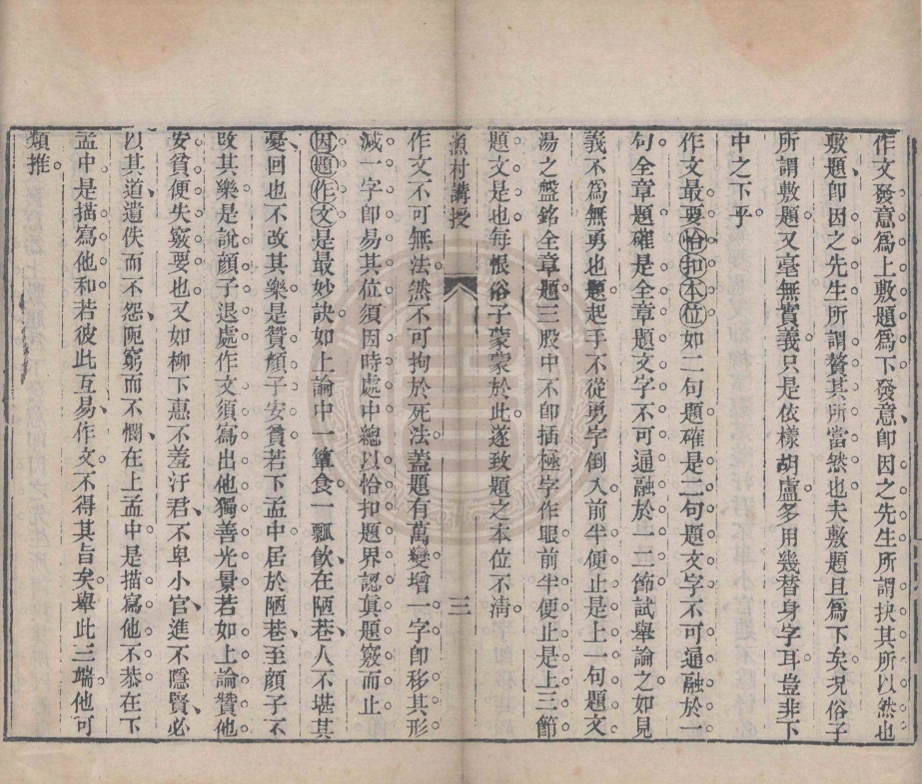 作文發意爲上敷題爲下發意卽因之先生所謂抉其所以然也
敷題卽因之先生所謂贅其所當然也夫敷題且爲下矣況俗子
所謂敷題又毫無實義只是依樣胡盧多用幾替身字耳豈非下
中之下乎
作文最要恰扣本位如二句題確是二句題文字不可通融於一
句全章題確是全章題文字不可通融於一二節試舉論之如見
義不爲無勇也題起手不從勇字倒入前半便止是上一句題文
湯之盤銘全章題三股中不卽插極字作眼前半便止是上三節
題文是也每恨俗子蒙蒙於此遂致題之本位不淸
漁村講授 三
作文不可無法然不可拘於死法蓋題有萬變增一字卽移其形
減一字卽易其位須因時處中總以恰扣題界認眞題竅而止
因題作文是最妙訣如上論中一簞食一瓢飮在陋巷人不堪其
憂回也不改其樂是贊顏子安貧若下孟中居於陋巷至顏子不
改其樂是說顏子退處作文須寫出他獨善光景若如上論贊他
安貧便失竅要也又如柳下惠不羞汙君不卑小官進不隱賢必
以其道遺佚而不怨阨窮而不憫在上孟中是描寫他不恭在下
孟中是描寫他和若彼此互易作文不得其旨矣舉此三端他可
類推